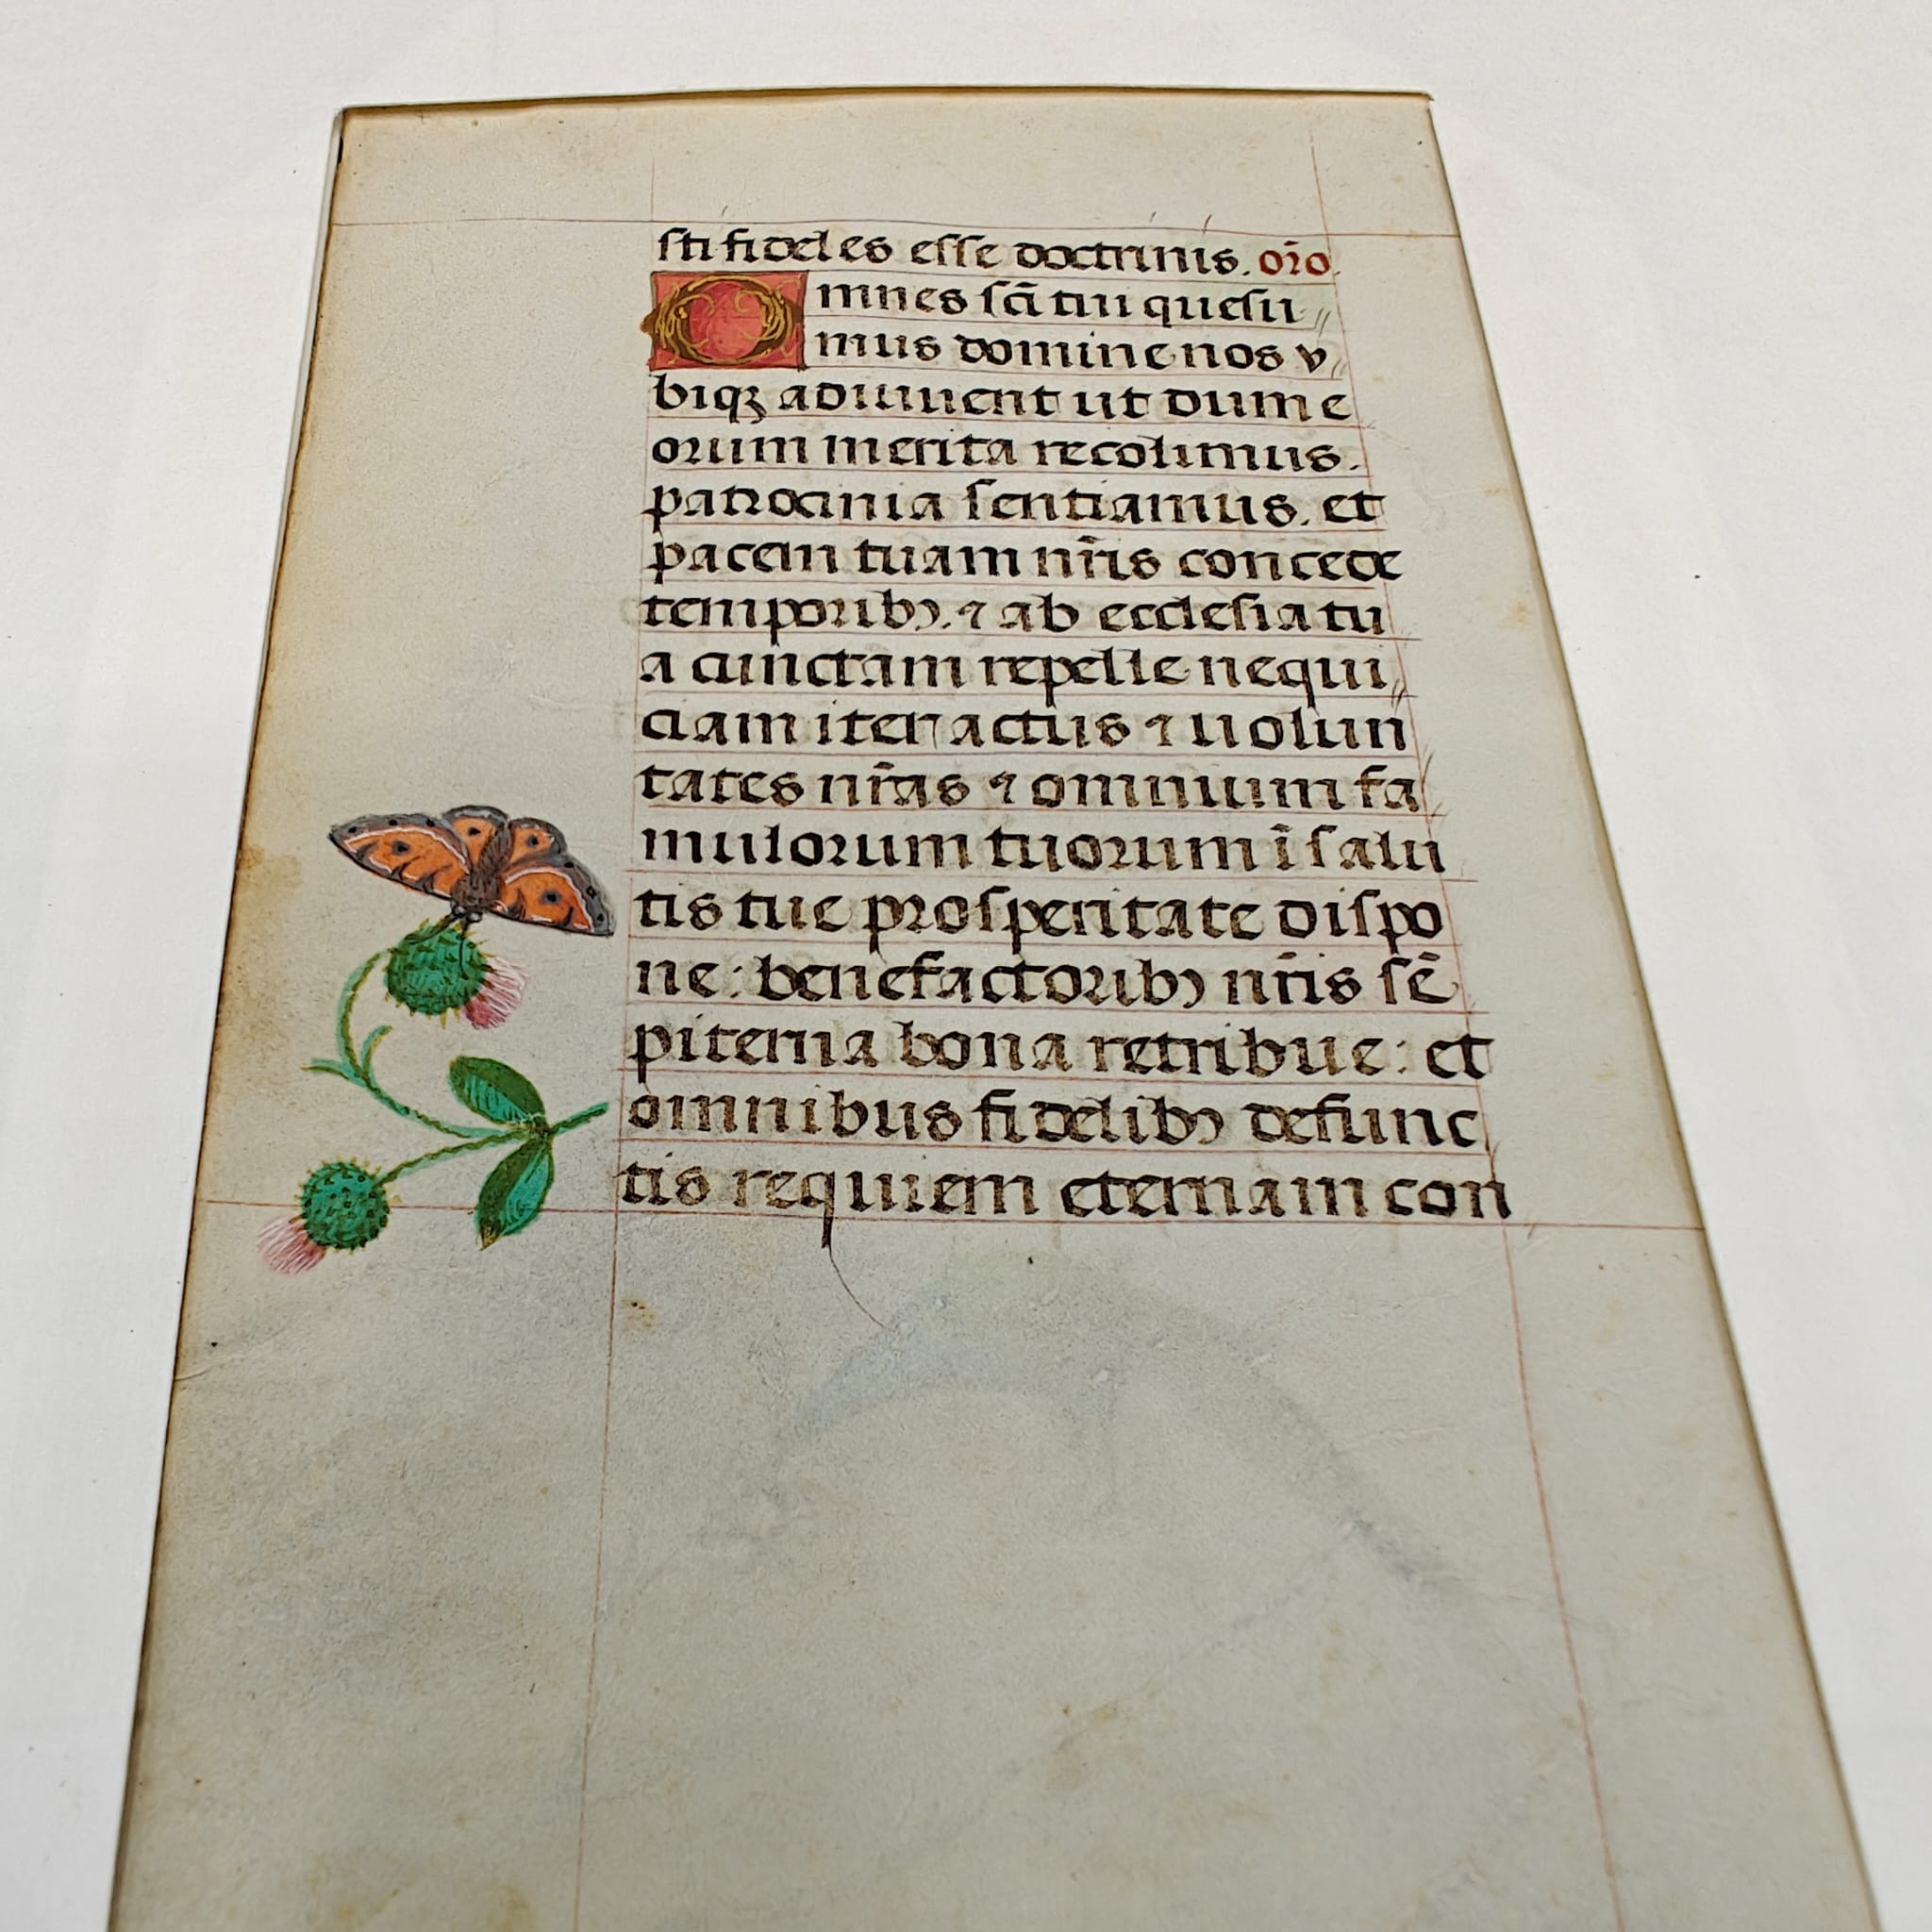 sti fideles esse doctrinis. or̃o.
Omnes sc̃i tui quesu//
mus domine nos v//
biqꝫ adiuuent ut dum e
orum merita recolimus.
patrocinia sentiamus. et
pacem tuam nr̃is concede
temporibꝰ. ⁊ ab ecclesia tu
a cunctam repelle nequi//
ciam iter actus ⁊ uolun
tates nr̃as ⁊ omnium fa
mulorum tuorum ĩ salu
tis tue prosperitate dispo
ne: benefactoribꝰ nr̃is sẽ
piterna bona retribue: et
omnibus fidelibꝰ defunc
tis requiem eternam con